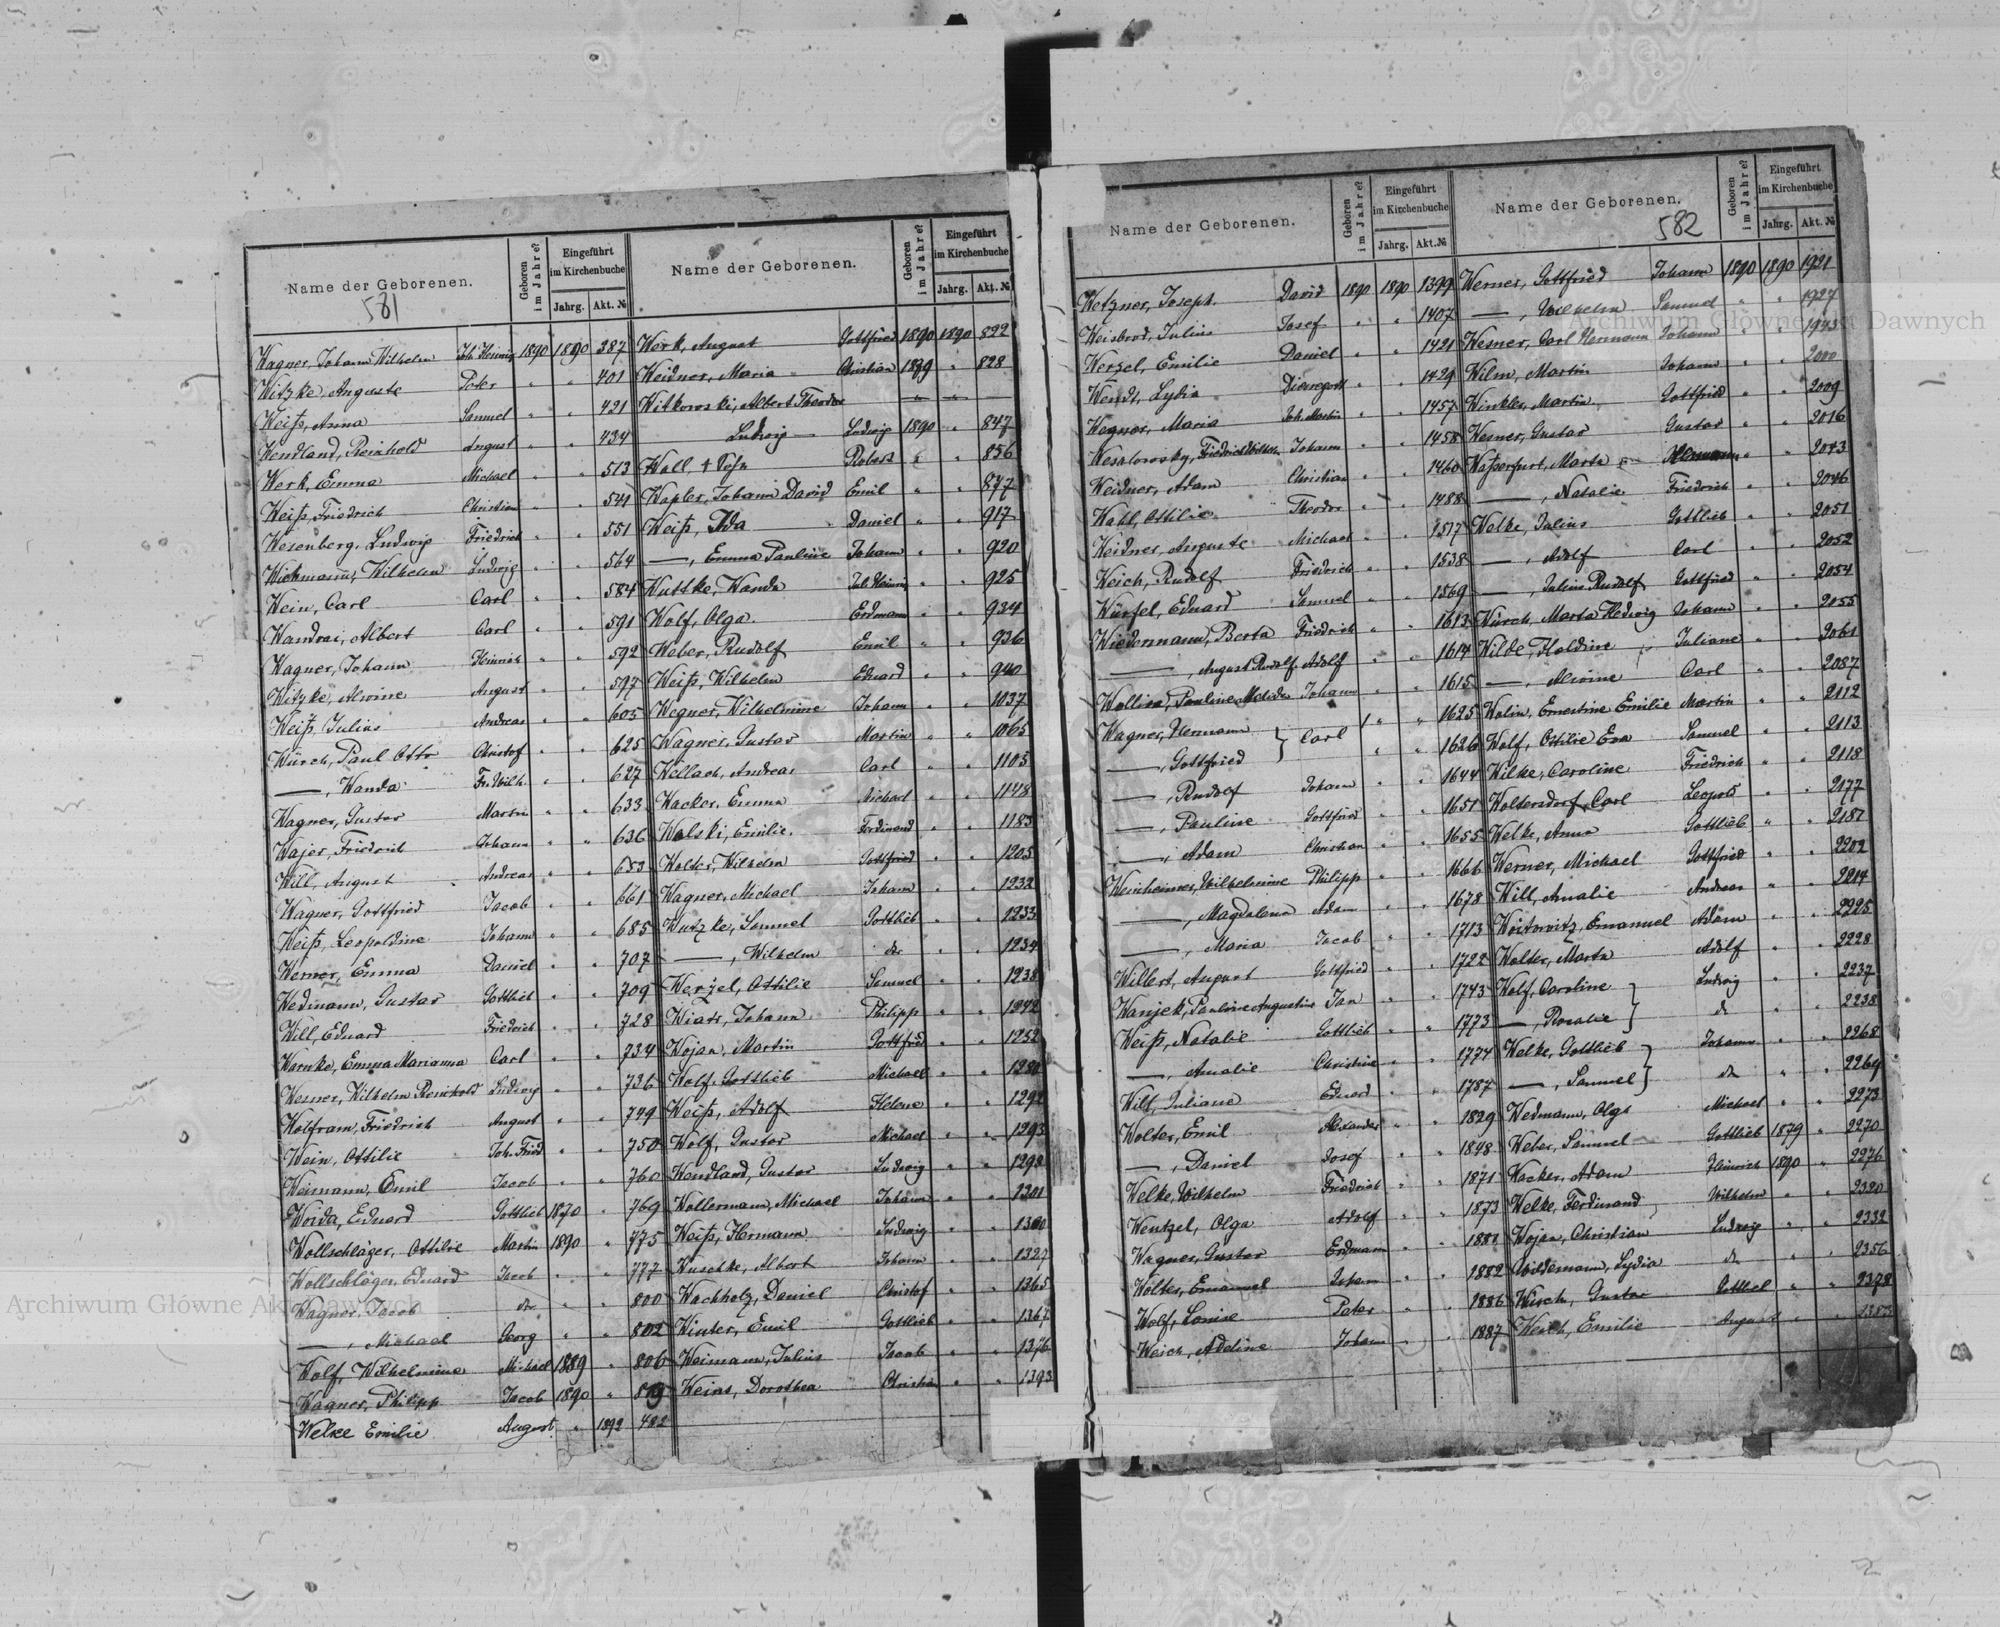 Name der Geborenen.
581
Geboren im Jahre?
Eingeführt im Kirchenbuche
Jahrg. Akt. №
Wagner, Johann Wilhelm Joh. Heinrig 1890 1890 387
Witzke, Auguste Peter " " 401
Weiß, Anna Samuel " " 421
Wendland, Reinhold August " " 434
Werk, Emma Michael " " 513
Weiß, Friedrich Christian " " 541
Wesenberg, Ludwig Friedrich " " 551
Wichmann, Wilhelm Ludwig " " 564
Wein, Carl Carl " " 584
Wandrai, Albert Carl " " 591
Wagner, Johann Heinrich " " 592
Witzke, Alwine August " " 597
Weiß, Julius Andreas " " 605
Würch, Paul Otto Christof " " 625
—, Wanda Fr. Wilh. " " 627
Wagner, Gustav Martin " " 633
Wajer, Friedrich Johann " " 636
Will, August Andreas " " 653
Wagner, Gottfried Jacob " " 661
Weiß, Leopoldine Johann " " 685
Werner, Emma Daniel " " 707
Wedmann, Gustav Gottlieb " " 709
Will, Eduard Friedrich " " 728
Warnke, Emma Marianna Carl " " 734
Wesner, Wilhelm Reinhold Ludwig " " 736
Wolfram, Friedrich August " " 749
Wein, Ottilie Joh. Fried " " 750
Weimann, Emil Jacob " " 760
Woida, Eduard Gottlieb 1870 " 769
Wollschläger, Ottilie Martin 1890 " 775
Wollschläger, Eduard Jacob " " 777
Wagner, Jacob do " " 800
—, Michael Georg " " 802
Wolf, Wilhelmine Michael 1889 " 806
Wagner, Philipp Jacob 1890 " 819
Welke Emilie August " 1892 482
Name der Geborenen.
Geboren im Jahre?
Eingeführt im Kirchenbuche
Jahrg. Akt. №
Werk, August Gottfried 1890 1890 822
Weidner, Maria Christian 1889 " 828
Witkowski, Albert Theodor — " — " —
Ludwig — Ludwig 1890 " 847
Wall + Sohn Robert " " 856
Wapler, Johann David Emil " " 877
Weiß, Ida Daniel " " 917
—, Emma Pauline Johann " " 920
Wuttke, Wanda Joh. Heinrig " " 925
Wolf, Olga Erdmann " " 934
Weber, Rudolf Emil " " 936
Weiß, Wilhelm Eduard " " 940
Wegner, Wilhelmine Johann " " 1037
Wagner, Gustav Martin " " 1065
Wellach, Andreas Carl " " 1105
Wacker, Emma Michael " " 1148
Walski, Emilie Ferdinand " " 1183
Wolter, Wilhelm Gottfried " " 1205
Wagner, Michael Johann " " 1232
Wutzke, Samuel Gottlieb " " 1233
—, Wilhelm do " " 1234
Wenzel, Ottilie Samuel " " 1238
Wiatr, Johann Philipp " " 1242
Wojan, Martin Gottfried " " 1252
Wolf, Gottlieb Michael " " 1280
Weiß, Adolf Helene " " 1292
Wolf, Gustav Michael " " 1293
Wendland, Gustav Ludwig " " 1298
Wollermann, Michael Johann " " 1301
Weiß, Hermann Ludwig " " 1310
Wuschke, Albert Johann " " 1327
Wachholz, Daniel Christof " " 1365
Winter, Emil Gottlieb " " 1367
Weimann, Julius Jacob " " 1376
Weins, Dorothea Christian " " 1393
Name der Geborenen.
Geboren im Jahre?
Eingeführt im Kirchenbuche
Jahrg. Akt. №
Wetzner, Joseph David 1890 1890 1399
Weisbrod, Julius Josef " " 1407
Wenzel, Emilie Daniel " " 1421
Wendt, Lydia " " 1429
Wegner, Maria Joh. Martin " " 1457
Wesolowsky, Friedrich Wilhelm Johann " " 1458
Weidner, Adam Christian " " 1460
Wahl, Ottilie Theodor " " 1488
Weidner, Auguste Michael " " 1517
Weich, Rudolf Friedrich " " 1538
Würfel, Eduard Samuel " " 1569
Wiedermann, Berta Friedrich " " 1613
—, August Rudolf Adolf " " 1614
Wallisa, Pauline Matilde Johann " " 1615
Wagner, Hermann } Carl " " 1625
—, Gottfried } " " 1626
—, Rudolf Johann " " 1644
—, Pauline Gottfried " " 1651
—, Adam Christian " " 1655
Weinheimer, Wilhelmine Philipp " " 1666
—, Magdalena Adam " " 1678
—, Maria Jacob " " 1713
Wilbert, August Gottfried " " 1722
Wanjek, Pauline Augustine Jan " " 1743
Weiß, Natalie Gottlieb " " 1773
—, Amalie Christine " " 1774
Wilt, Juliane Eduard " " 1787
Wolter, Emil Alexander " " 1829
—, Daniel Josef " " 1848
Welke, Wilhelm Friedrich " " 1871
Wentzel, Olga Adolf " " 1873
Wagner, Gustav Erdmann " " 1881
Wolter, Emanuel Johann " " 1882
Wolf, Louise Peter " " 1886
Weich, Adeline Johann " " 1887
Name der Geborenen.
582
Geboren im Jahre?
Eingeführt im Kirchenbuche
Jahrg. Akt. №
Werner, Gottfried Johann 1890 1890 1921
—, Wilhelm Samuel " " 1927
Wesner, Carl Hermann Johann " " 1943
Wilm, Martin Johann " " 2000
Winkler, Martin Gottfried " " 2009
Wesner, Gustav Gustav " " 2016
Waßerfurt, Marta Hermann " " 2043
—, Natalie Friedrich " " 2046
Welke, Julius Gottlieb " " 2051
—, Adolf Carl " " 2052
—, Julius Rudolf Gottfried " " 2054
Würch, Marta Hedwig Johann " " 2055
Wilde, Holdine Juliane " " 2061
—, Alwine Carl " " 2087
Wolin, Ernestine Emilie Martin " " 2112
Wolf, Ottilie Eva Samuel " " 2113
Wilke, Caroline Friedrich " " 2118
Woltersdorf, Carl Leopold " " 2177
Welke, Anna Gottlieb " " 2187
Werner, Michael Gottfried " " 2202
Will, Amalie Andreas " " 2214
Woitowitz, Emanuel Adam " " 2225
Wolter, Marta Adolf " " 2228
Wolf, Caroline } Ludwig " " 2237
—, Rosalie } do " " 2238
Welke, Gottlieb } Johann " " 2268
—, Samuel } do " " 2269
Wedmann, Olga Michael " " 2273
Weber, Samuel Gottlieb 1879 " 2270
Wacker, Adam Heinrich 1890 " 2276
Welke, Ferdinand Wilhelm " " 2320
Wojan, Christian Ludwig " " 2332
Wildemann, Lydia do " " 2356
Wirch, Gustav Gottlieb " " 2378
Weich, Emilie August " "
Archiwum Główne Akt Dawnych
Archiwum Główne Akt Dawnych